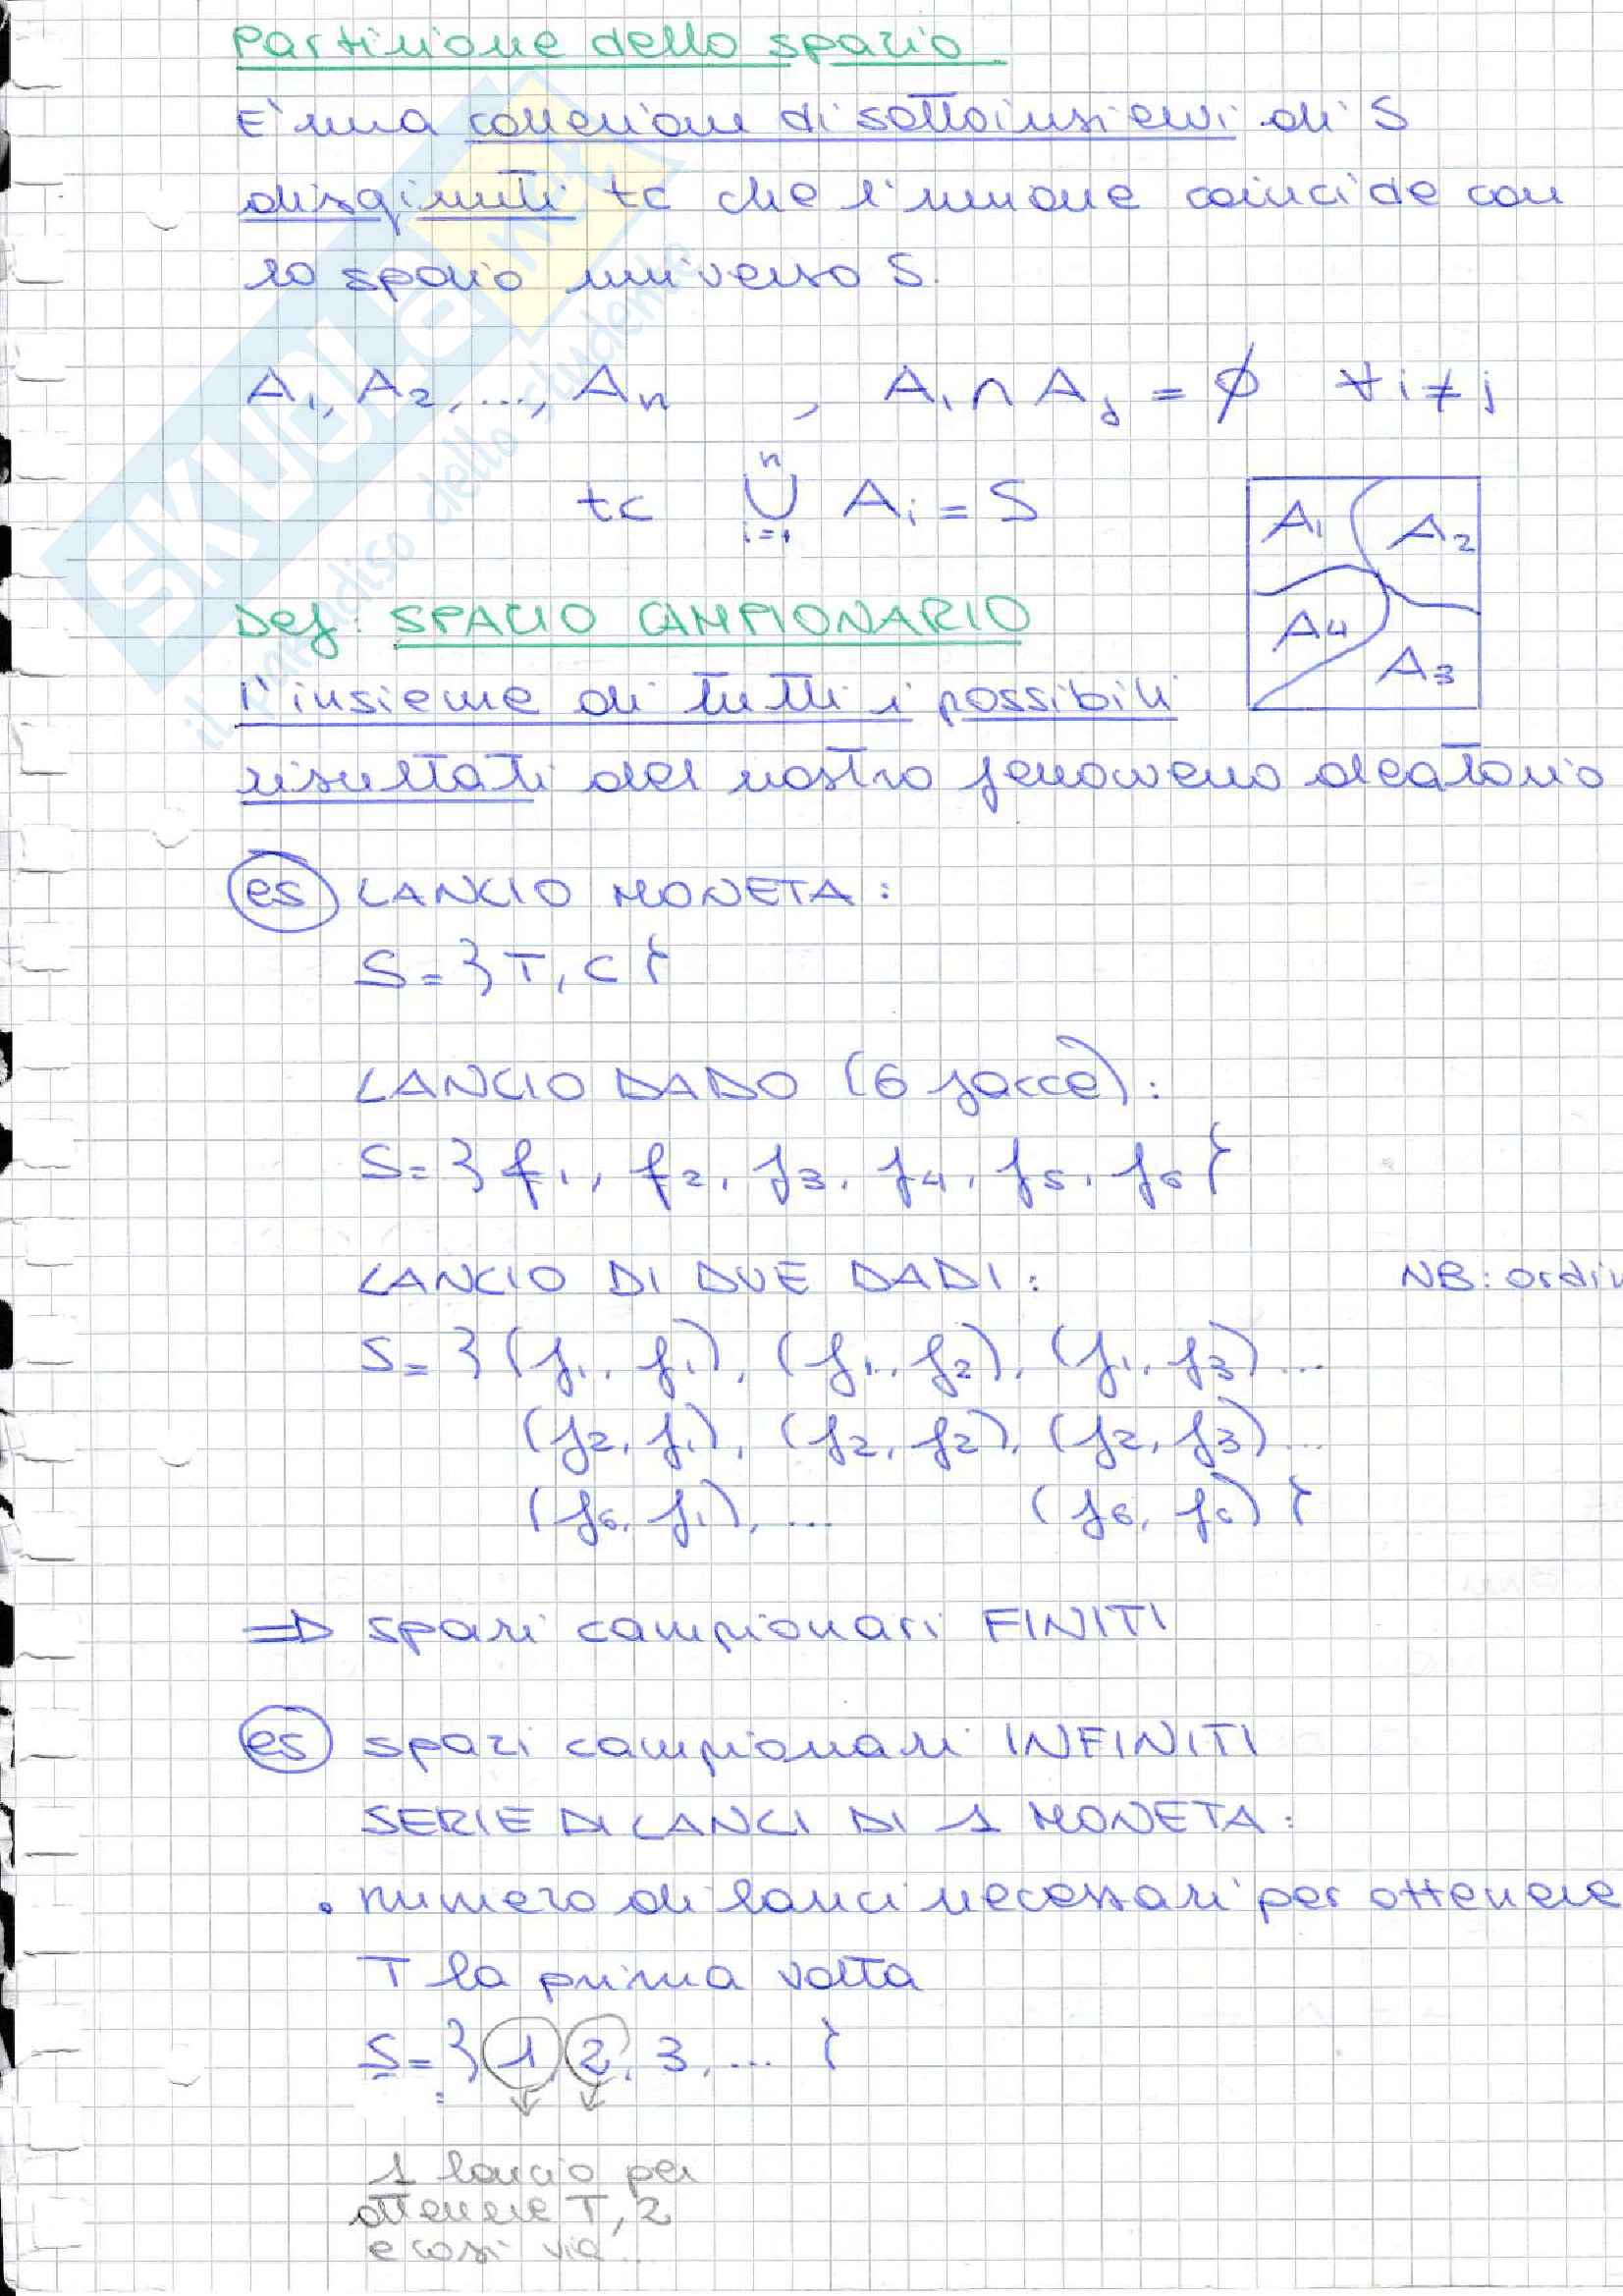 Partizione dello spazio
E' una collezione di sottoinsiemi di S
disgiunti tc che l'unione coincide con
lo spazio universo S.
A₁, A₂, ..., Aₙ , Aᵢ ∩ Aⱼ = ∅ ∀ i ≠ j
tc ⋃ⁿᵢ₌₁ Aᵢ = S
A₁ A₂
A₄ A₃
Def: SPAZIO CAMPIONARIO
l'insieme di tutti i possibili
risultati del nostro fenomeno aleatorio
es LANCIO MONETA:
S = {T, C}
LANCIO DADO (6 facce):
S = {f₁, f₂, f₃, f₄, f₅, f₆}
LANCIO DI DUE DADI: NB:
S = {(f₁, f₁), (f₁, f₂), (f₁, f₃) ...
(f₂, f₁), (f₂, f₂), (f₂, f₃) ...
(f₆, f₁), ... (f₆, f₆)}
=> spazi campionari FINITI
es spazi campionari INFINITI
SERIE DI LANCI DI 1 MONETA:
• numero di lanci necessari per ottenere
T la prima volta
S = {1, 2, 3, ... }
1 lancio per
ottenere T, 2
e così via...
SKUOLA.net
il paradiso dello studente